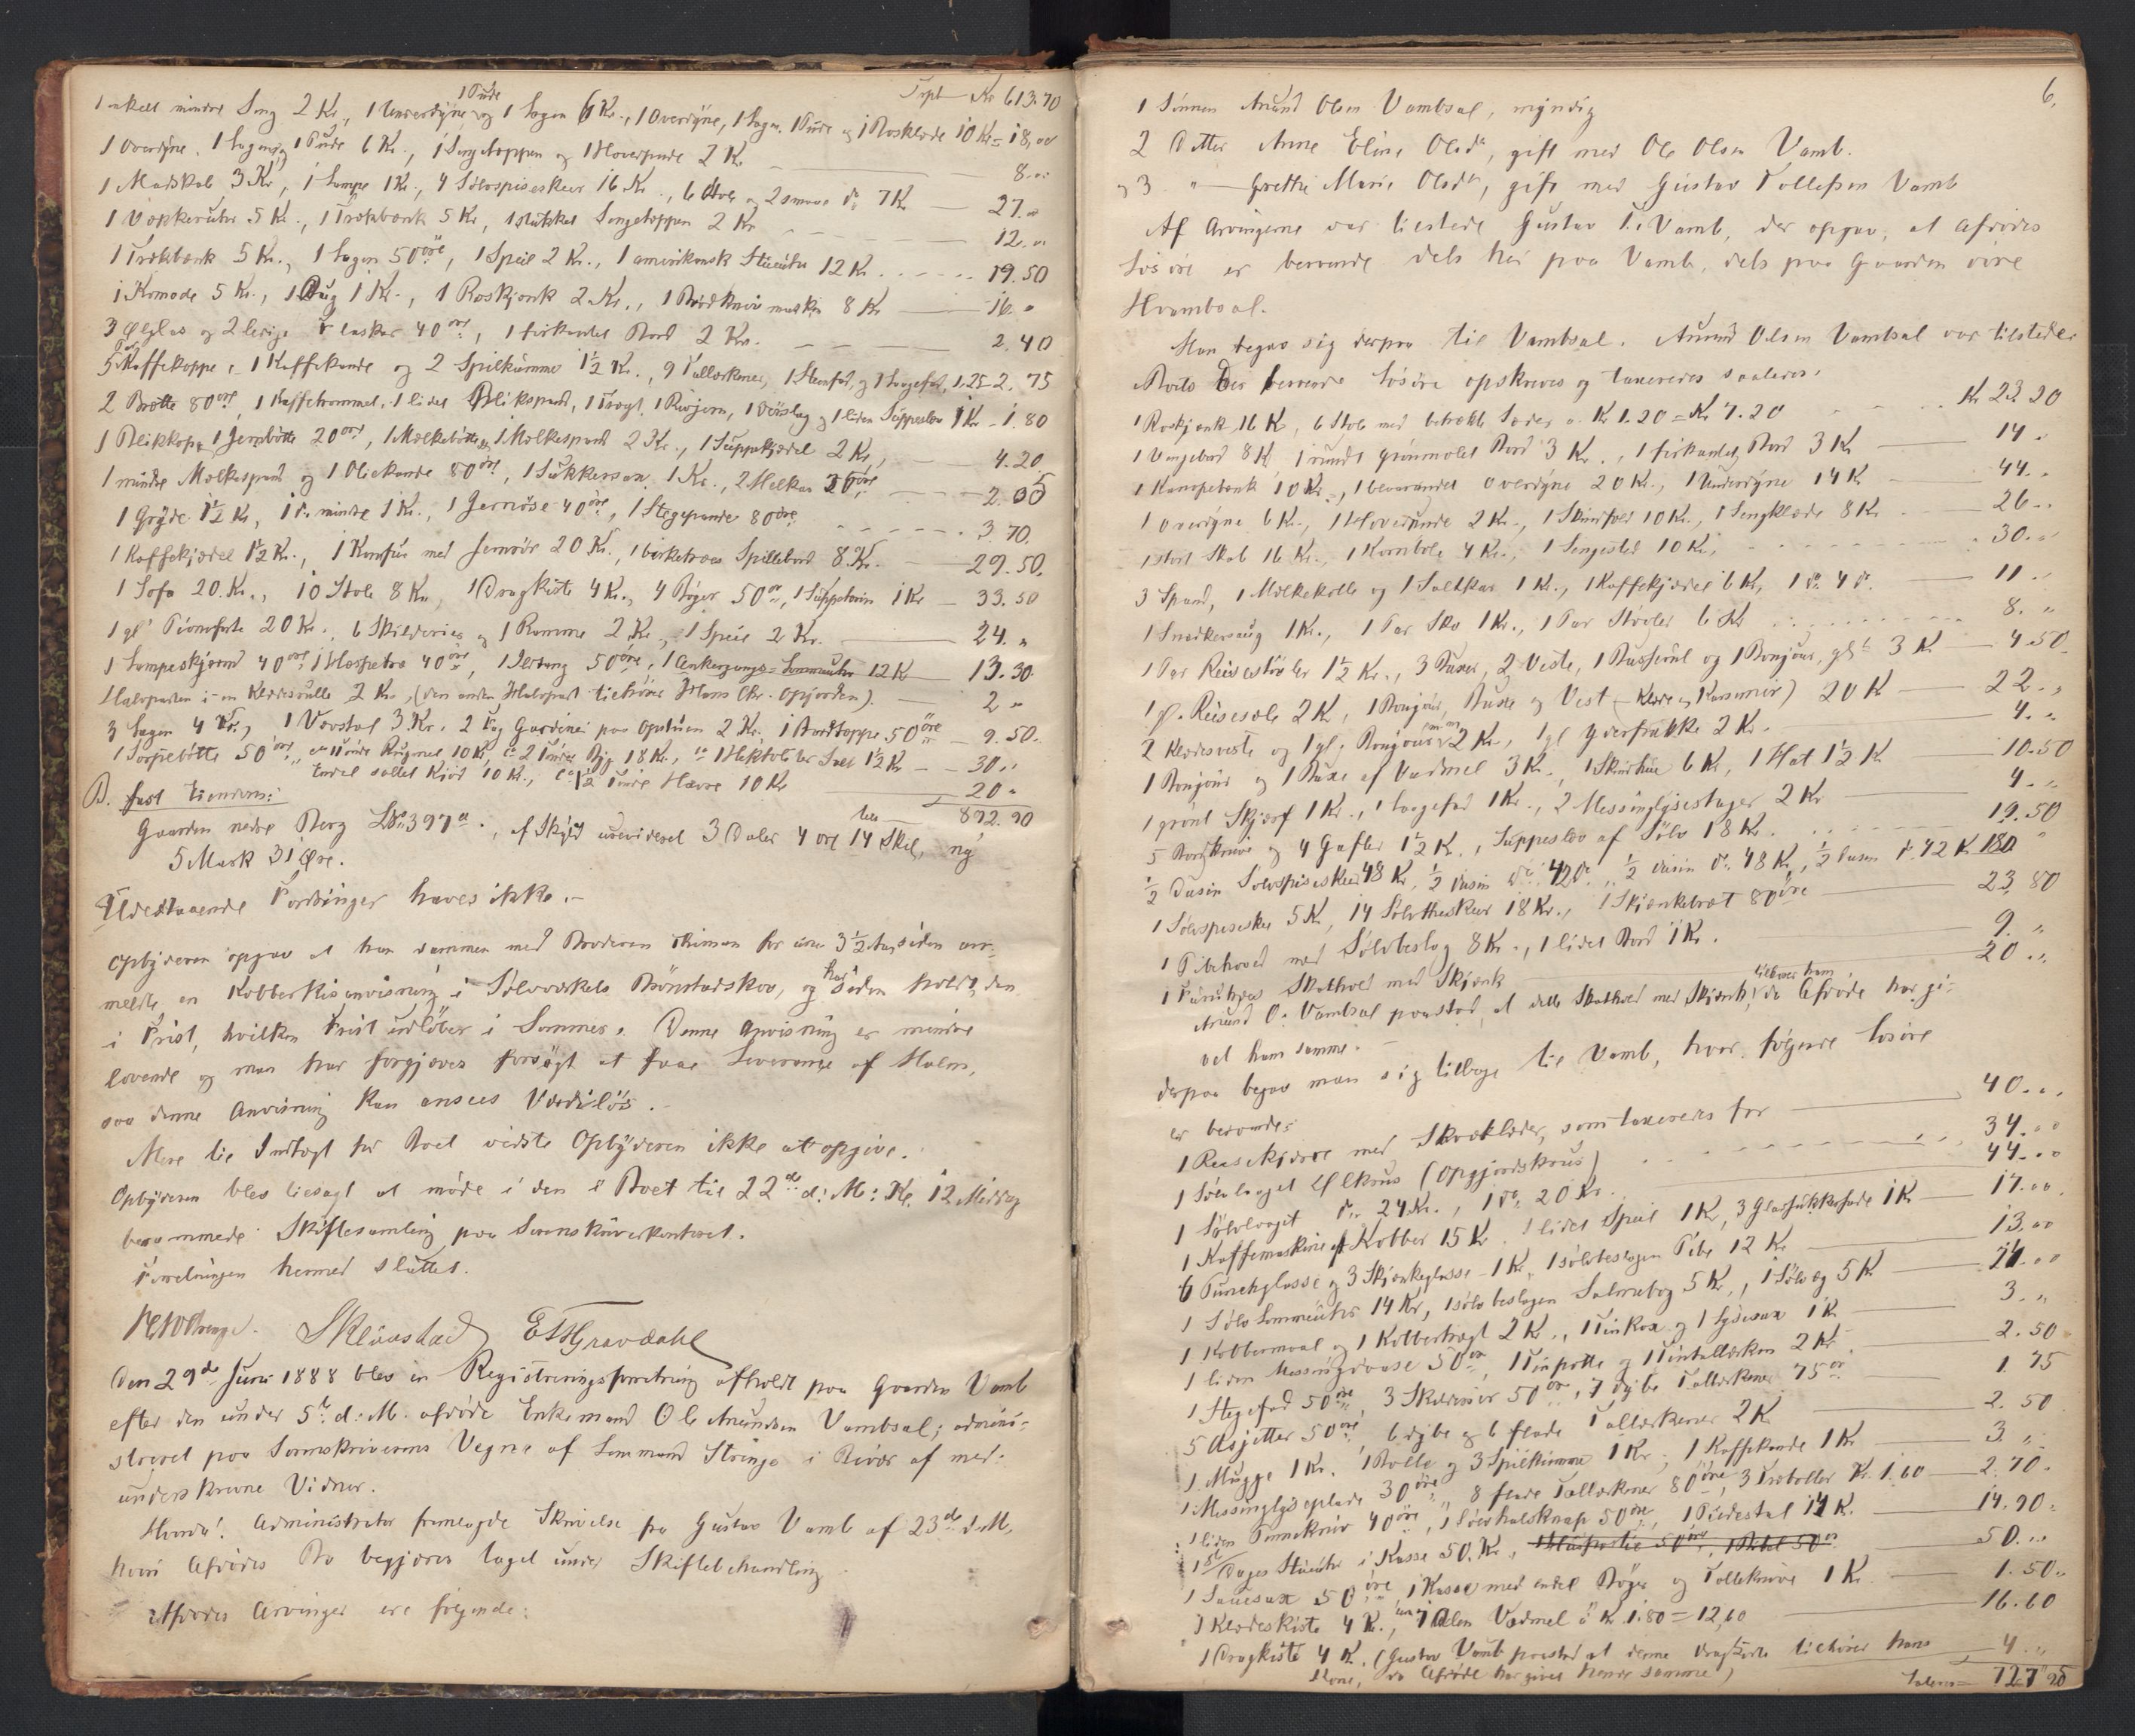 Trpt Kr 613.70
1 enkelt mindre Seng 2 Kr., 1 Underdyne 1 Pude og 1 Lagen 6 Kr., 1 Overdyne, 1 Lagen, 1 Pude og 1 Rosklæde 10 Kr = 18,00
1 Overdyne, 1 Lagen og 1 Pude 6 Kr., 1 Sengetæppen og 1 Hovedpude 2 Kr — 8.00
1 Madskab 3 Kr, 1 Lampe 1 Kr., 4 Sølvspiseskeer 16 Kr., 6 Stole og 2 smaae do 7 Kr — 27.00
1 Vækkeruhr 5 Kr., 1 Trækbænk 5 Kr, 1 Sengetæppen 2 Kr — 12.00
1 Trækbænk 5 Kr., 1 Lagen 50 øre, 1 Speil 2 Kr., 1 amerikansk Stueuhr 12 Kr — 19.50
1 Komode 5 Kr., 1 Dug 1 Kr., 1 Roskjænk 2 Kr., 1 maskin 8 Kr — 16."
3 Ølglas og 2 ledige Flasker 40 øre, 1 firkantet Bord 2 Kr. — 2.40
5 Par Kaffekoppe, 1 Kaffekande og 2 Spilkumme 1½ Kr., 9 Tallerkener, 1 Stenfad, og 1 Laagefad, 1.25 — 2.75
2 Bøtte 80 øre, 1 Kaffetrommel, 1 lidet Blikspand, 1 Tragt, 1 Rivjern, 1 Dørslag og 1 liden Suppeslev 1 Kr — 1.80
1 Blikkop, 1 Jernbøtte 20 øre, 1 Melkebøtte, 1 Melkespand 2 Kr., 1 Suppekjedel 2 Kr, — 4.20
1 mindre Melkespand og 1 Oliekande 80 øre, 1 Sukkersax 1 Kr., 2 Melkes — 2.05
1 Gryde 1½ Kr, 1 do mindre 1 Kr., 1 Jernøse 40 øre, 1 Stegepande 80 øre — 3.70.
1 Kaffekjedel 1½ Kr., 1 Komfur med Jernrør 20 Kr., 1 birketræes Spillebord 8 Kr. — 29.50.
1 Sofa 20 Kr., 10 Stole 8 Kr, 1 Dragkiste 4 Kr., 4 Bøger 50 ør, 1 Suppeterin 1 Kr — 33.50
1 gl. Pianoforte 20 Kr., 6 Skilderier og 1 Ramme 2 Kr., 1 Speil 2 Kr. — 24."
1 Lampeskjærm 40 øre, 40 øre, 1 Ildtang 50 øre, 1 Ankergangs-Lommeuhr 12 Kr — 13.30.
Halvparten i en Klæderulle 2 Kr, (den anden Halvpart tilhører Hans Chr. Opjorden). — 2"
3 Lagen 4 Kr., 1 Vævstol 3 Kr. 2 Fag Gardiner paa Opstuen 2 Kr. 1 50 øre — 9.50.
1 Sørpebøtte 50 øre, ca 1 Tønde Rugmel 10 Kr, ca 2 Tønder Byg 18 Kr., ca 1 Hektoliter Salt 1½ Kr — 30."
Endel saltet Kjød 10 Kr., ca 1½ Tønde Havre 10 Kr — 20"
B. fast Eiendom: lats — 892.90
Gaarden nedre Berg Lbno 397 a, af Skyld urevideret 3 Daler 4 ort 14 Skil, ny
5 Mark 31 Øre.
Udestaaende Fordringer haves ikke.—
Opbyderen opgav at han sammen med Broderen Thiman for circa 3½ Aar siden an-
meldte en Kobberkisanvisning i Sølvværkets Skov, og har siden holdt den
i Frist, hvilken Frist udløber i Sommer. Denne Anvisning er mindre
lovende og man har forgjæves forsøgt at faae Leverance af Malm,
saa denne Anvisning kan ansees Værdiløs.
Mere til Indtægt for Boet vidste Opbyderen ikke at opgive.
Opbyderen blev tilsagt at møde i den i Boet til 22de d: M: Kl. 12 Middag
berammede Skiftesamling paa Sorenskriverkontoret.
Forretningen hermed sluttet.
Klaastad E Th Gravdahl
Den 29de Juni 1888 blev en Registreringsforretning afholdt paa Gaarden Vamb
efter den under 5te d: M. afdøde Enkemand Ole Amundsen Vambsal; admini-
streret paa Sorenskriverens Vegne af Lensmand Strænge i Biv.. af med-
underskrevne Vidner.
Hvorda! Administrator fremlagde Skrivelse fra Gustav Vamb af 23de d. M.
hvori Afdødes Bo begjæres taget under Skiftebehandling
Afdødes Arvinger ere følgende:
6,
1 Sønnen Amund Olsen Vambsal, myndig
2 Datter Anne Eline Olsdr, gift med Ole Olsen Vamb.
og 3 " — Grethe Marie Olsdr, gift med Gustav Tollefsen Vamb
Af Arvingerne var tilstede Gustav T. Vamb, der opgav, at Afdødes
Løsøre er beroende dels her paa Vamb, dels paa Gaarden øvre
Hvambsal.
Man begav sig derpaa til Vambsal. Amund Olsen Vambsal var tilstede.
Boets der beroende Løsøre opskreves og taxeredes saaledes:
1 Roskjænk 16 Kr, 6 Stole med betrukket Sæder a Kr 1.20 = Kr 7.20 — Kr 23.20
1 Vingebord 8 K, 1 rundt grønmalet Bord 3 Kr., 1 firkantet Bord 3 Kr — 14"
1 Kanapebænk 10 Kr., 1 Overdyne 20 Kr., 1 Underdyne 14 K — 44."
1 Overdyne 6 Kr., 1 Hovedpude 2 Kr., 1 Skindfeld 10 Kr., 1 Sengklæde 8 Kr — 26.."
1 stort Skab 16 Kr., 1 Kornbøle 4 Kr., 1 Sengested 10 Kr., — 30.."
3 Spand, 1 Melkekolle og 1 Saltkar 1 Kr., 1 Kaffekjedel 6 Kr, 1 do 4 do. — 11."
1 Snedkersaug 1 Kr., 1 Par Sko 1 Kr., 1 Par Støvler 6 Kr — 8."
1 Par Reisestøvler 1½ Kr., 3 Buxer, 2 Veste, 1 og 1 Bonjour, gl. 3 K — 4.50
1 gl. Reisesæle 2 Kr, 1 Bonjour, Buxe og Vest (Klæde og Kasimir) 20 K — 22.."
2 Klædesveste og 1 gl. Bonjour 2 Kr, 1 gl Yderfrakke 2 Kr. — 4."
1 Bonjour og 1 Buxe af Vadmel 3 K., 1 Skindhue 6 Kr, 1 Hat 1½ Kr — 10.50
1 grønt Skjærf 1 Kr., 1 Laagefad 1 Kr., 2 Messinglysestager 2 Kr — 4."
5 Bordknive og 4 Gafler 1½ K., Suppeslev af Sølv 18 Kr. — 19.50
½ Dusin Sølvspiseskeer 48 Kr, ½ Dusin do 42 do., ½ Dusin do. 48 Kr, ½ Dusin do. 42 K 180"
1 Sølvspiseske 5 K, 14 Sølvtheskeer 18 Kr., 1 Skjænkebræt 80 øre — 23.80
1 Pibehoved med Sølvbeslag 8 Kr., 1 lidet Bord 1 Kr. — 9."
1 Skathvel med Skjænk — 20.."
Amund O. Vambsal paastod, at dette Skathvel med Skjænk, tilhører ham, da Afdøde har gi-
vet ham samme.—
Derpaa begav man sig tilbage til Vamb, hvor følgende Løsøre
er beroende:
1 Reisekjærre med Skvætlæder, som taxeredes for — 40...
1 Sølvlaaget Ølkrus (Opgjordskrus) — 34.00
1 Sølvlaaget do 24 Kr., 1 do, 20 Kr. — 44.00
1 Kaffemaskine af Kobber 15 Kr. 1 lidet Speil 1 Kr, 3 Glassukkerfade 1 K — 17.00
6 Punchglasse og 3 Skjænkeglasse 1 Kr, 1 sølvbeslagen Pibe 12 Kr — 13.00
1 Sølv Lommeuhr 14 Kr, 1 sølvbeslagen Salmebog 5 Kr, 1 Sølvæg 5 K — 24.00
1 Kobbermaal og 1 Kobbertragt 2 Kr., og 1 Lysesax 1 K — 3."
1 liden Messingdaase 50 ør, 1 Tinpotte og 1 Tintallerken 2 Kr — 2.50
1 Stegefad 50 øre, 3 Skilderier 50 øre, 7 dybe Tallerkener 75 ør — 1.75
5 Asjetter 50 øre, 6 dybe og 6 flade Tallerkener 2 K — 2.50
1 Mugge 1 Kr., 1 Bolle og 3 Spilkumme 1 Kr., 1 Kaffekande 1 Kr — 3."
1 Messinglyseplade 30 øre, 8 flade Tallerkener 80 øre, 3 Træboller Kr. 1.60 — 2.70.
1 liden Pennekniv 40 øre, 1 Sølvhalsknap 50 øre, 1 Piedestal 14 K. — 14.90.
1 8te Dages Stueuhr i Kasse 50 Kr., — 50...
1 Sauesax 50 øre, 1 Kasse med endel Bøger og Tolleknive 1 K — 1.50..
1 Klædeskiste 4 K., 7 Alen Vadmel a Kr 1.80 = 12,60 — 16.60
1 Dragkiste 4 K. (Gustav Vamb paastod at denne Dragkiste tilhører hans — 4."
Kone, da Afdøde har givet hende samme)
Lateris = 727.95